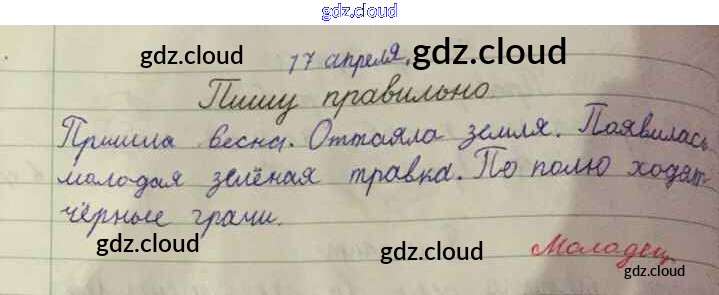 gdz.cloud
gdz.cloud 17 апреля. gdz.cloud
Пишу правильно.
Пришла весна. Оттаяла земля. Появилась
молодая зелёная травка. По полю ходят
чёрные грачи.
gdz.cloud gdz.cloud Молодец
gdz.cloud